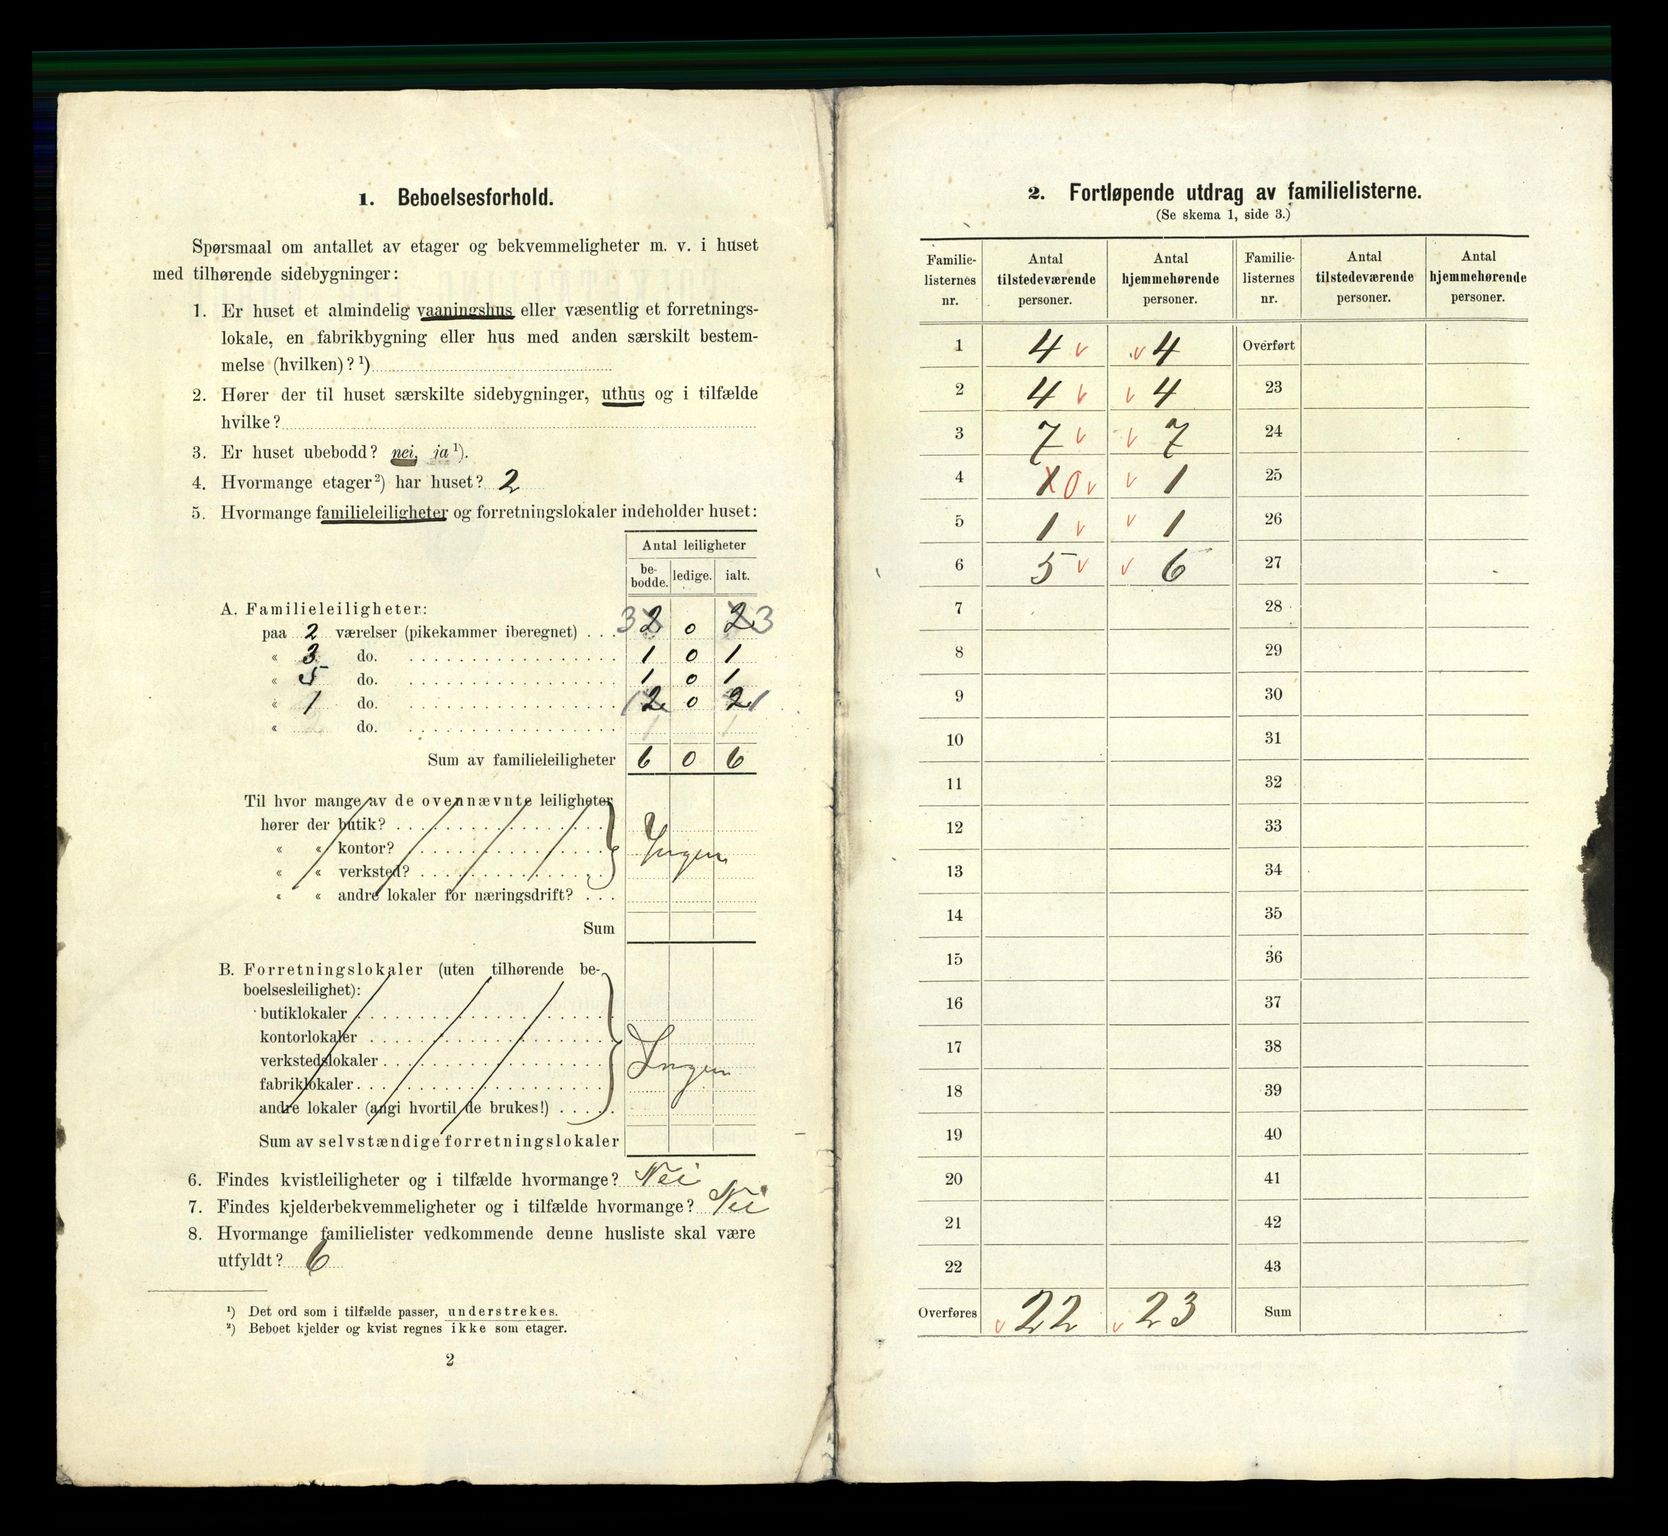 1. Beboelsesforhold.
Spørsmaal om antallet av etager og bekvemmeligheter m. v. i huset
med tilhørende sidebygninger:
1. Er huset et almindelig vaaningshus eller væsentlig et forretnings-
lokale, en fabrikbygning eller hus med anden særskilt bestem-
melse (hvilken)? ¹)
2. Hører der til huset særskilte sidebygninger, uthus og i tilfælde
hvilke?
3. Er huset ubebodd? nei, ja ¹).
4. Hvormange etager ²) har huset? 2
5. Hvormange familieleiligheter og forretningslokaler indeholder huset:
Antal leiligheter
be-
bodde. ledige. ialt.
A. Familieleiligheter:
paa 2 værelser (pikekammer iberegnet) . . . 3 2 0 2 3
« 3 do. 1 0 1
« 5 do. 1 0 1
« 1 do. 1 2 0 2 1
« do.
Sum av familieleiligheter 6 0 6
Til hvor mange av de ovennævnte leiligheter
hører der butik?
« « kontor? Ingen
« « verksted?
« « andre lokaler for næringsdrift?
Sum
B. Forretningslokaler (uten tilhørende be-
boelsesleilighet):
butiklokaler
kontorlokaler
verkstedslokaler Ingen
fabriklokaler
andre lokaler (angi hvortil de brukes!)
Sum av selvstændige forretningslokaler
6. Findes kvistleiligheter og i tilfælde hvormange? Nei
7. Findes kjelderbekvemmeligheter og i tilfælde hvormange? Nei
8. Hvormange familielister vedkommende denne husliste skal være
utfyldt? 6
¹) Det ord som i tilfælde passer, understrekes.
²) Beboet kjelder og kvist regnes ikke som etager.
2
2. Fortløpende utdrag av familielisterne.
(Se skema 1, side 3.)
Familie-
listernes
nr. Antal
tilstedeværende
personer. Antal
hjemmehørende
personer. Familie-
listernes
nr. Antal
tilstedeværende
personer. Antal
hjemmehørende
personer.
1 4 v v 4 Overført
2 4 v v 4 23
3 7 v v 7 24
4 1 0 v v 1 25
5 1 v v 1 26
6 5 v v 6 27
7 28
8 29
9 30
10 31
11 32
12 33
13 34
14 35
15 36
16 37
17 38
18 39
19 40
20 41
21 42
22 43
Overføres v 22 v 23 Sum